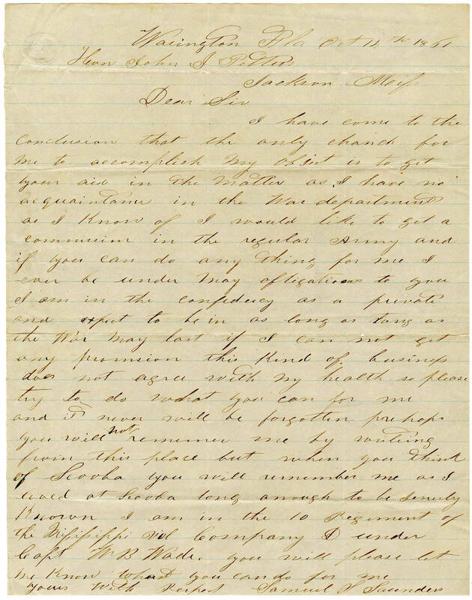 Warington Fla Oct 12th 1861
Hon John J Pettus
Jackson Miss
Dear Sir
I have come to the
conclusion that the only chance for
me to accomplish my object is to get
your aid in the matter as I have no
acquaintance in the War department
as I know of I would like to get a
commission in the regular Army and
if you can do any thing for me I
ever be under may obligations to you
I am in the confedicy as a private
and expect to be in as long as long as
the War may last if I can not get
any promision this kind of business
does not agree with my health so please
try to do what you can for me
and it never will be forgotten prehaps
you will not rememer me by writing
from this place but when you think
of Scooba you will remember me as I
lived at Scooba long enough to be
known I am in the 10 Regiment of
the Missippi Vol Company I under
Capt W B Wade. you will please let
me know what you can do for me
yours With Respet Samuel Saunders